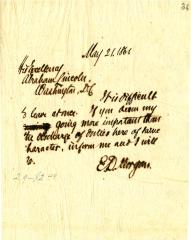 36
May 21. 1861
His Excellency
Abraham Lincoln,
Washington, D.C
It is difficult
to leave at once. If you deem my
going more important than
the discharge of duties here of
character, inform me and I will
go.
E. D. Morgan